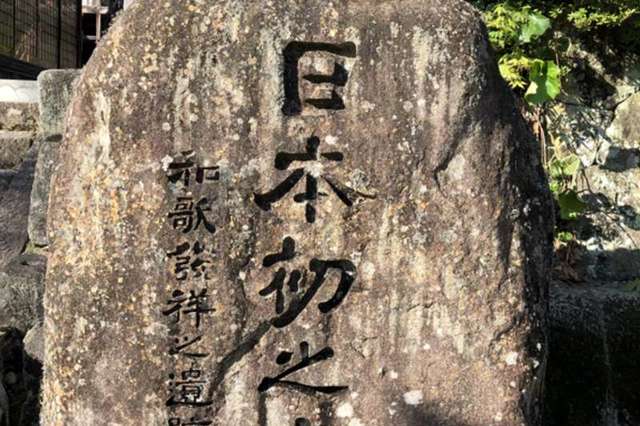 日本初之
和歌発祥之遺跡